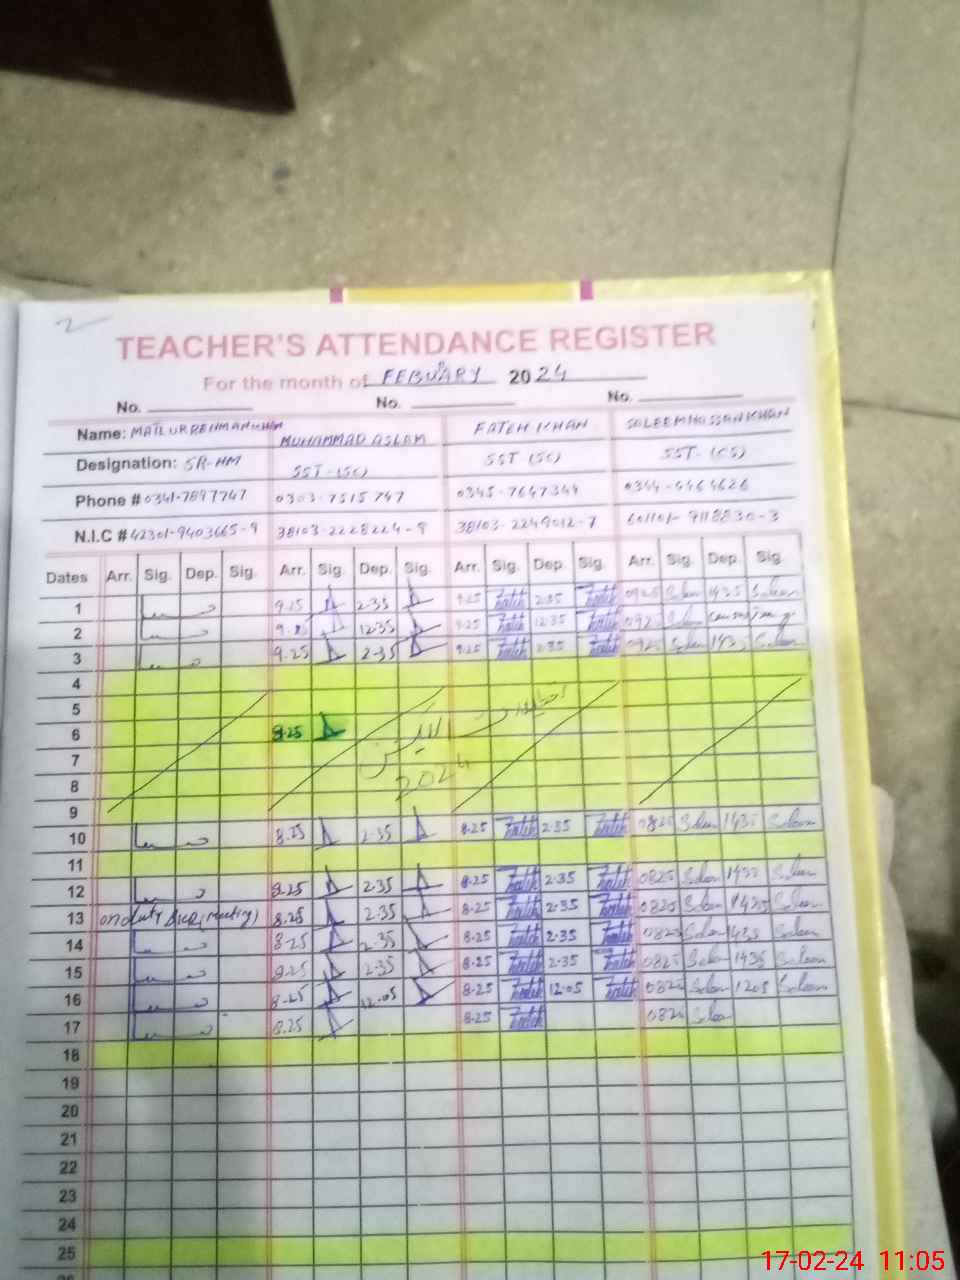 2
TEACHER'S ATTENDANCE REGISTER
For the month of FEBUARY 2024
No. No. No.
Name: MATIURREHMANKHAN MUHAMMAD ASLAM FATEH KHAN SALEEMHASSANKHAN
Designation: SR-HM SST-(SC) SST (SC) SST-(CS)
Phone # 0341-7897747 0303-7515747 0345-7647349 0344-4464626
N.I.C # 42301-9403665-9 38103-2228224-9 38103-2249012-7
Dates Arr. Sig. Dep. Sig. Arr. Sig. Dep. Sig. Arr. Sig. Dep. Sig. Arr. Sig. Dep. Sig.
1 9.25 2.35 9.25 Fateh 2.35 Fateh 0925 Saleem 1435 Saleem
2 12.35 9.25 Fateh 12.35 Fateh 0925 Saleem
3 9.25 2.35 9.25 Fateh 2.35 Fateh 0925 Saleem 1435 Saleem
4
5
6 8.25
7 الیکشن
8 2024
9
10 8.25 2.35 8.25 Fateh 2.35 Fateh 0825 Saleem 1435 Saleem
11
12 8.25 2.35 8.25 Fateh 2.35 Fateh 0825 Saleem 1435 Saleem
13 on duty (meeting) 8.25 2.35 8.25 Fateh 2.35 Fateh 0825 Saleem 1435 Saleem
14 8.25 2.35 8.25 Fateh 2.35 Fateh 0825 Saleem 1435 Saleem
15 8.25 2.35 8.25 Fateh 2.35 Fateh 0825 Saleem 1435 Saleem
16 8.25 12.05 8.25 Fateh 12.05 Fateh 0825 Saleem 1205 Saleem
17 8.25 8.25 Fateh 0825 Saleem
18
19
20
21
22
23
24
25
17-02-24 11:05